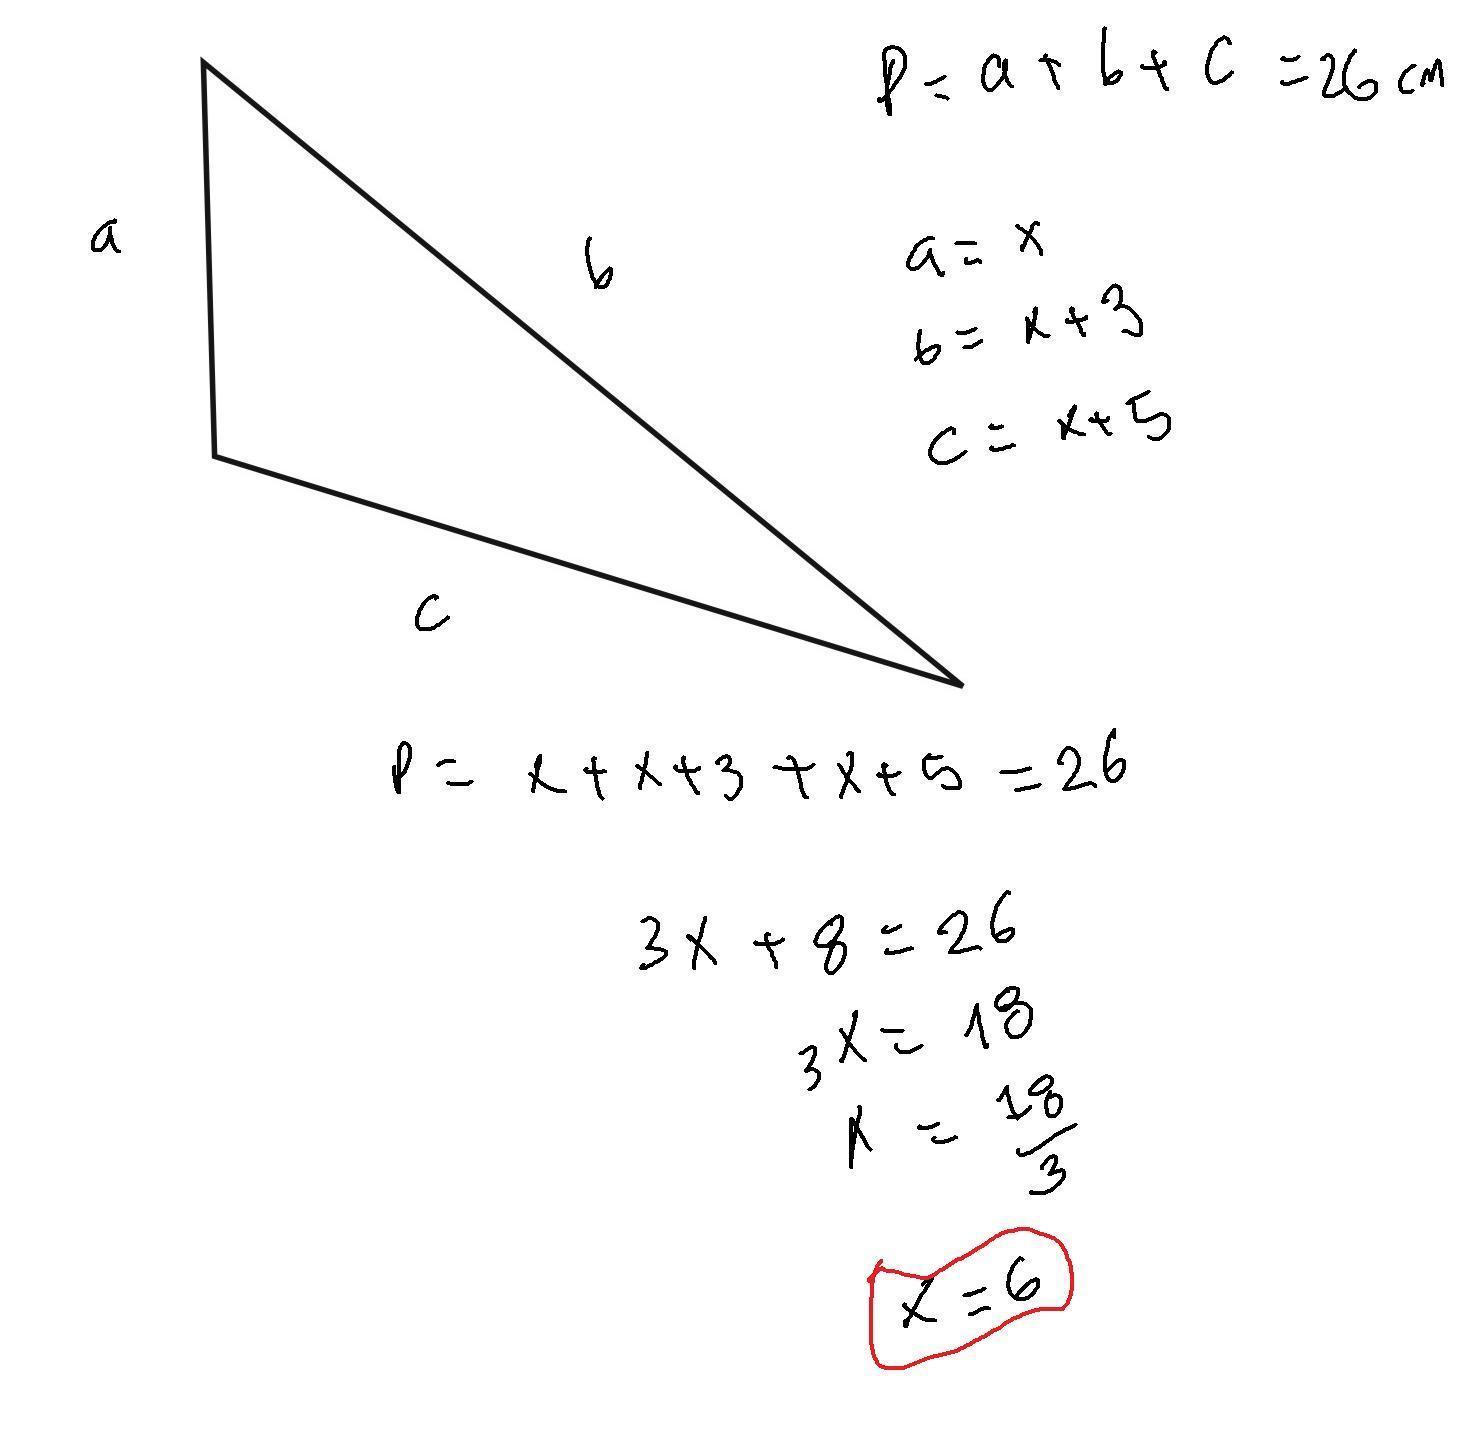 P = a + b + c = 26 cm
a
b
a = x
b = x + 3
c = x + 5
c
P = x + x + 3 + x + 5 = 26
3x + 8 = 26
3x = 18
x = 18/3
x = 6